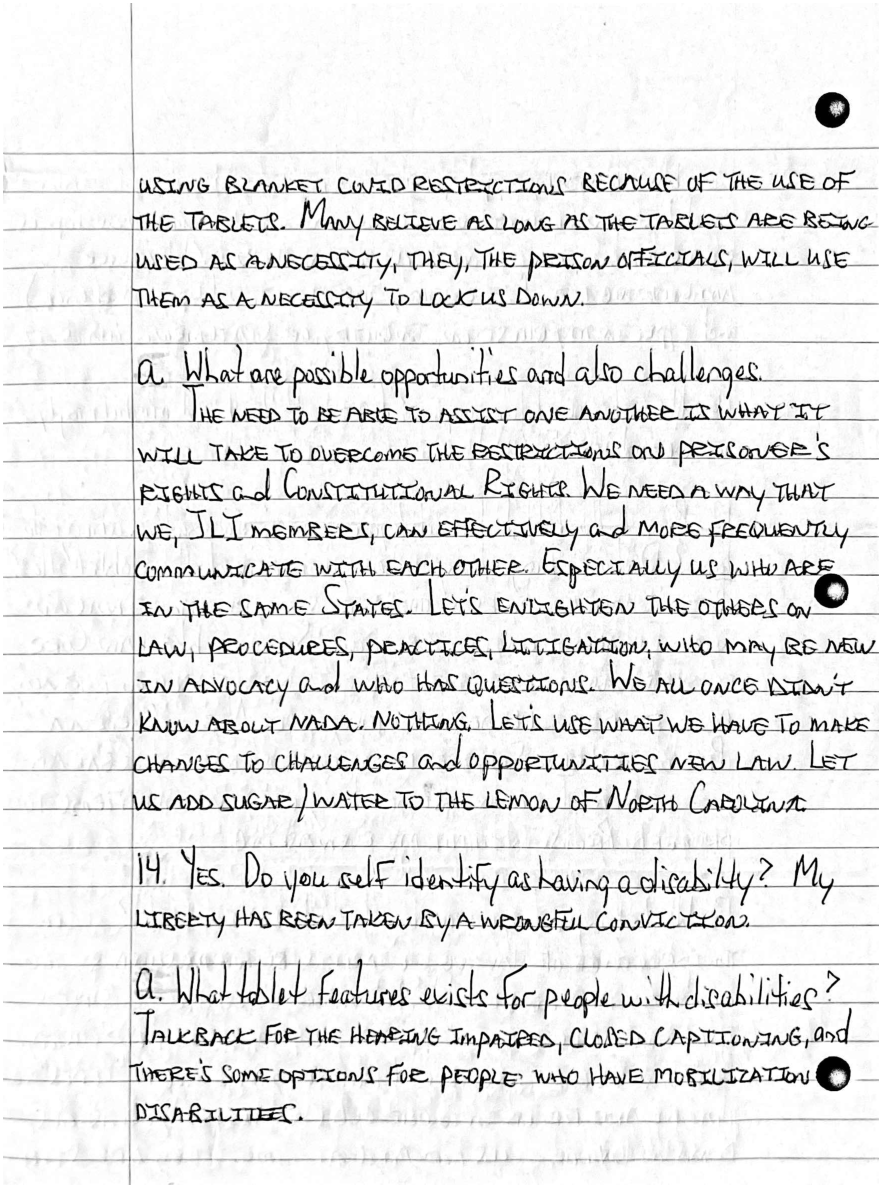 USING BLANKET COVID RESTRICTIONS BECAUSE OF THE USE OF
THE TABLETS. MANY BELIEVE AS LONG AS THE TABLETS ARE BEING
USED AS A NECESSITY, THEY, THE PRISON OFFICIALS, WILL USE
THEM AS A NECESSITY TO LOCK US DOWN.
a. What are possible opportunities and also challenges.
THE NEED TO BE ABLE TO ASSIST ONE ANOTHER IS WHAT IT
WILL TAKE TO OVERCOME THE RESTRICTIONS ON PRISONER'S
RIGHTS and CONSTITUTIONAL RIGHTS. WE NEED A WAY THAT
WE, JLI MEMBERS, CAN EFFECTIVELY and MORE FREQUENTLY
COMMUNICATE WITH EACH OTHER. ESPECIALLY US WHO ARE
IN THE SAME STATES. LET'S ENLIGHTEN THE OTHERS ON
LAW, PROCEDURES, PRACTICES, LITIGATION, WHO MAY BE NEW
IN ADVOCACY and WHO HAS QUESTIONS. WE ALL ONCE DIDN'T
KNOW ABOUT NADA. NOTHING. LET'S USE WHAT WE HAVE TO MAKE
CHANGES TO CHALLENGES and OPPORTUNITIES NEW LAW. LET
US ADD SUGAR/WATER TO THE LEMON OF NORTH CAROLINA
14. YES. Do you self identify as having a disabilty? My
LIBERTY HAS BEEN TAKEN BY A WRONGFUL CONVICTION.
a. What tablet features exists for people with disabilities?
TALKBACK FOR THE HEARING IMPAIRED, CLOSED CAPTIONING, and
THERE'S SOME OPTIONS FOR PEOPLE WHO HAVE MOBILIZATION
DISABILITIES.